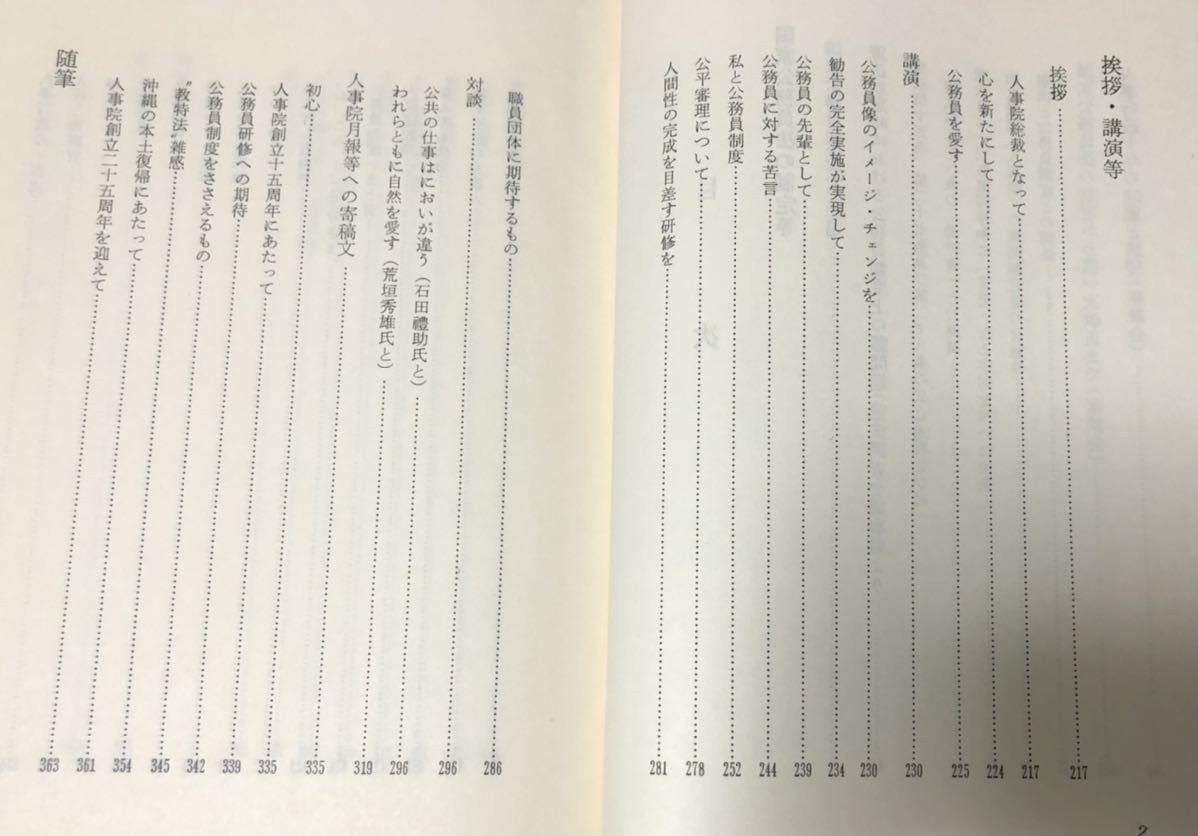 挨拶・講演等
挨拶……217
人事院総裁となって……217
心を新たにして……224
公務員を愛す……225
講演……230
公務員像のイメージ・チェンジを……230
勧告の完全実施が実現して……234
公務員の先輩として……239
公務員に対する苦言……244
私と公務員制度……252
公平審理について……278
人間性の完成を目差す研修を……281
2
職員団体に期待するもの……286
対談……296
公共の仕事はにおいが違う（石田禮助氏と）……296
われらともに自然を愛す（荒垣秀雄氏と）……319
人事院月報等への寄稿文……335
初心……335
人事院創立十五周年にあたって……339
公務員研修への期待……342
公務員制度をささえるもの……345
“教特法”雑感……354
沖縄の本土復帰にあたって……361
人事院創立二十五周年を迎えて……363
随筆